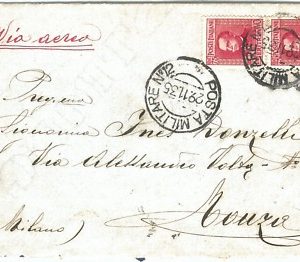 Via aerea
POSTA MILITARE N° 12
22.11.35
Pregma
Signorina Ines Donzelli
Via Alessandro Volta
Monza
Milano)